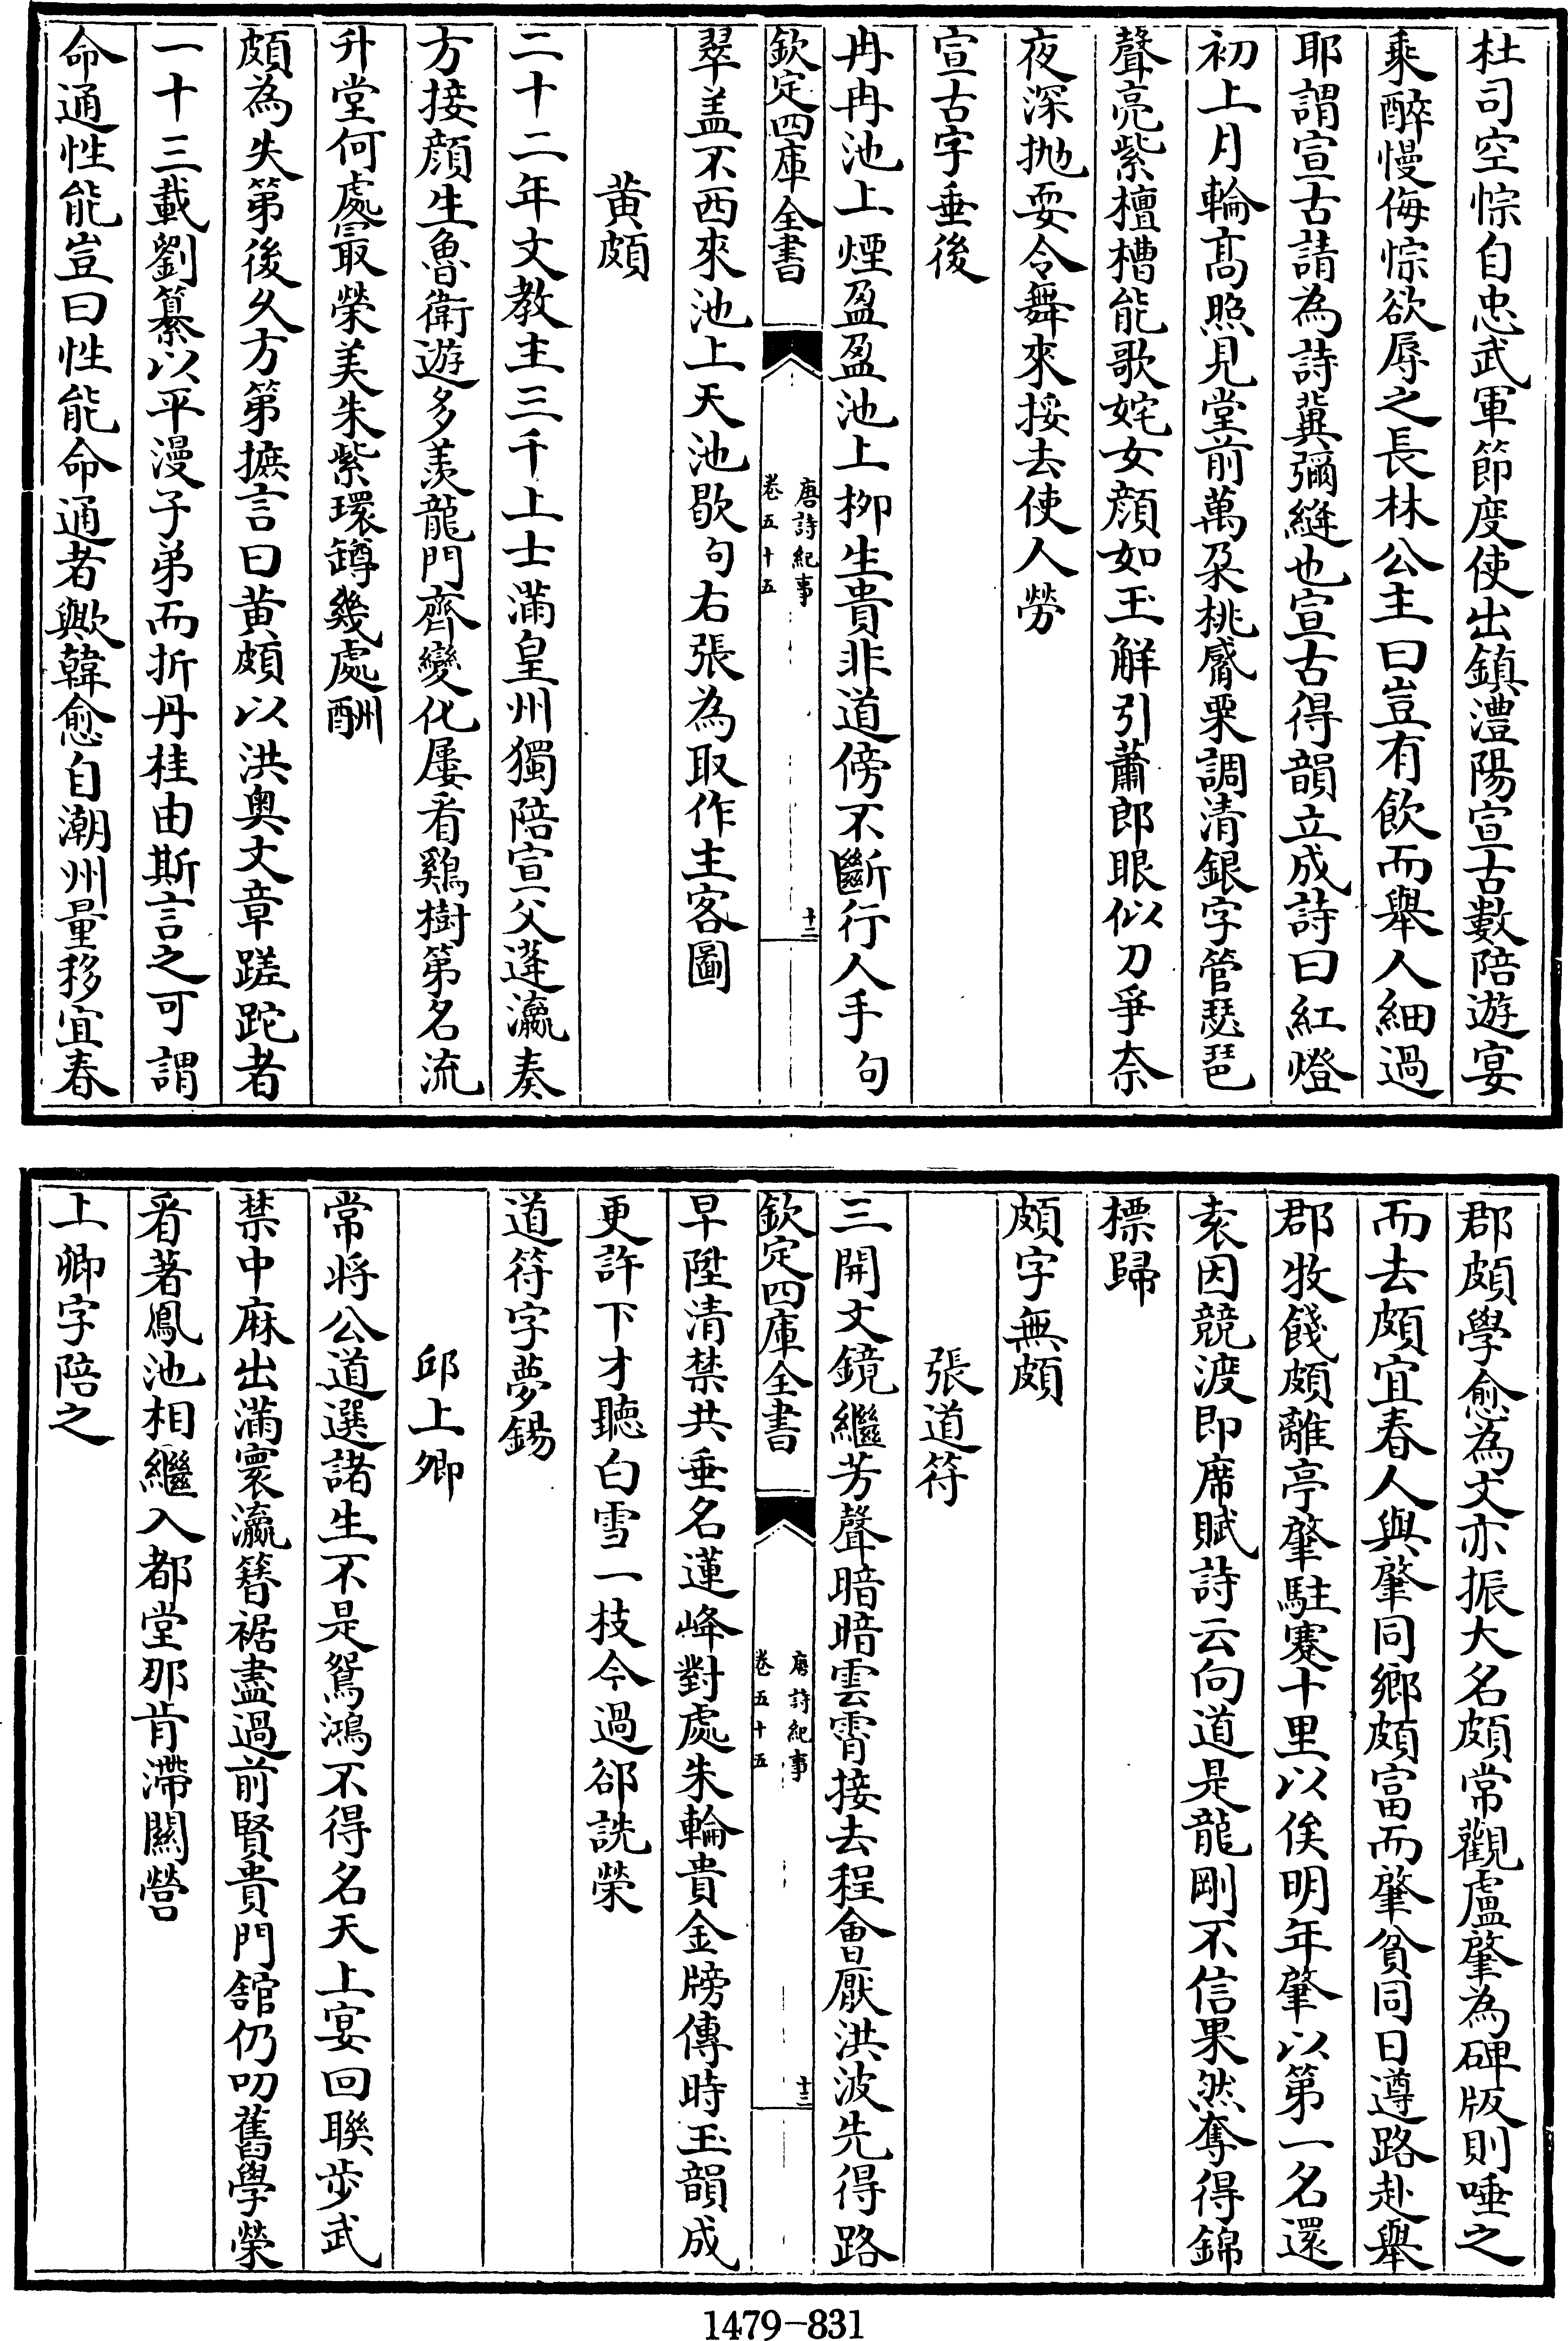 杜司空悰自忠武軍節度使出鎮澧陽宣古數陪遊宴
乘醉慢侮悰欲辱之長林公主曰豈有飲而舉人細過
耶謂宣古請為詩冀彌縫也宣古得韻立成詩曰紅燈
初上月輪髙照見堂前萬朶桃觱栗調清銀字管琵琶
聲亮紫檀槽能歌姹女顔如玉解引蕭郎眼似刀爭奈
夜深抛耍令舞來挼去使人勞
宣古字垂後
冉冉池上煙盈盈池上栁生貴非道傍不斷行人手句
欽定四庫全書
唐詩紀事
卷五十五
十二
翠盖不西來池上天池歇句右張為取作主客圖
黄頗
二十二年文教主三千上士滿皇州獨陪宣父逰瀛奏
方接顔生魯衛遊多羨龍門齊變化屢看鷄樹第名流
升堂何處最榮美朱紫環罇幾處酬
頗為失第後乆方第摭言曰黄頗以洪奥文章蹉跎者
一十三載劉纂以平漫子弟而折丹桂由斯言之可謂
命通性能豈曰性能命通者歟韓愈自潮州量移宜春
郡頗學愈為文亦振大名頗常觀盧肇為碑版則唾之
而去頗宜春人與肇同鄉頗富而肇貧同日遵路赴舉
郡牧餞頗離亭肇駐蹇十里以俟明年肇以第一名還
袁因競渡即席賦詩云向道是龍剛不信果然奪得錦
標歸
頗字無頗
張道符
三開文鏡繼芳聲暗暗雲霄接去程會厭洪波先得路
欽定四庫全書
唐詩紀事
卷五十五
十三
早陞清禁共垂名蓮峰對處朱輪貴金牓傳時玉韻成
更許下才聽白雪一枝今過郤詵榮
道符字夢錫
邱上卿
常將公道選諸生不是鴛鴻不得名天上宴回聯步武
禁中麻出滿寰瀛簪裾盡過前賢貴門舘仍叨舊學榮
看著鳳池相繼入都堂那肯滯關營
上卿字陪之
1479-831